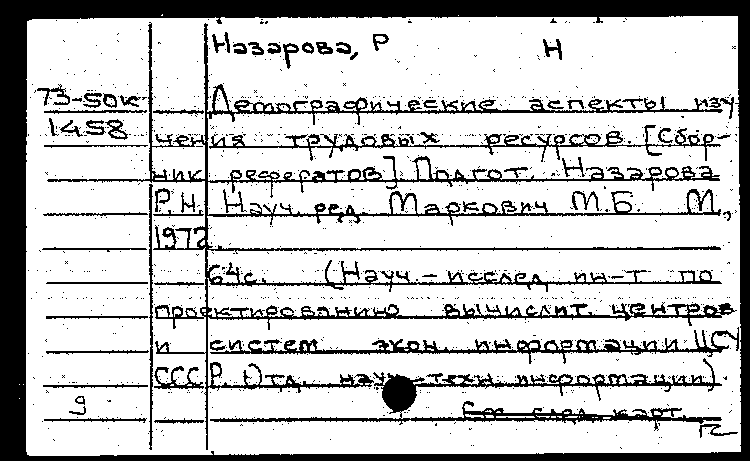 Назарова, Р Н
73-50к Демографические аспекты изу
1458 чения трудовых ресурсов. [Сбор-
ник рефератов]. Подгот. Назарова
Р.Н. Науч. ред. Маркович М.Б. М.,
1972.
64с. (Науч.-исслед. ин-т по
проектированию вычислит. центров
и систем экон. информации ЦСУ
СССР. Отд. науч.-техн. информации).
9 См. след. карт.